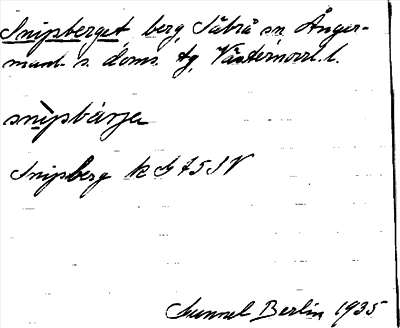 Snipberget berg, Säbrå sn, Ånger-
manl. s. doms. tg, Västernorrl. l.
snìpbárje
Snipberg k G 75 SV
Gunnel Berlin 1935